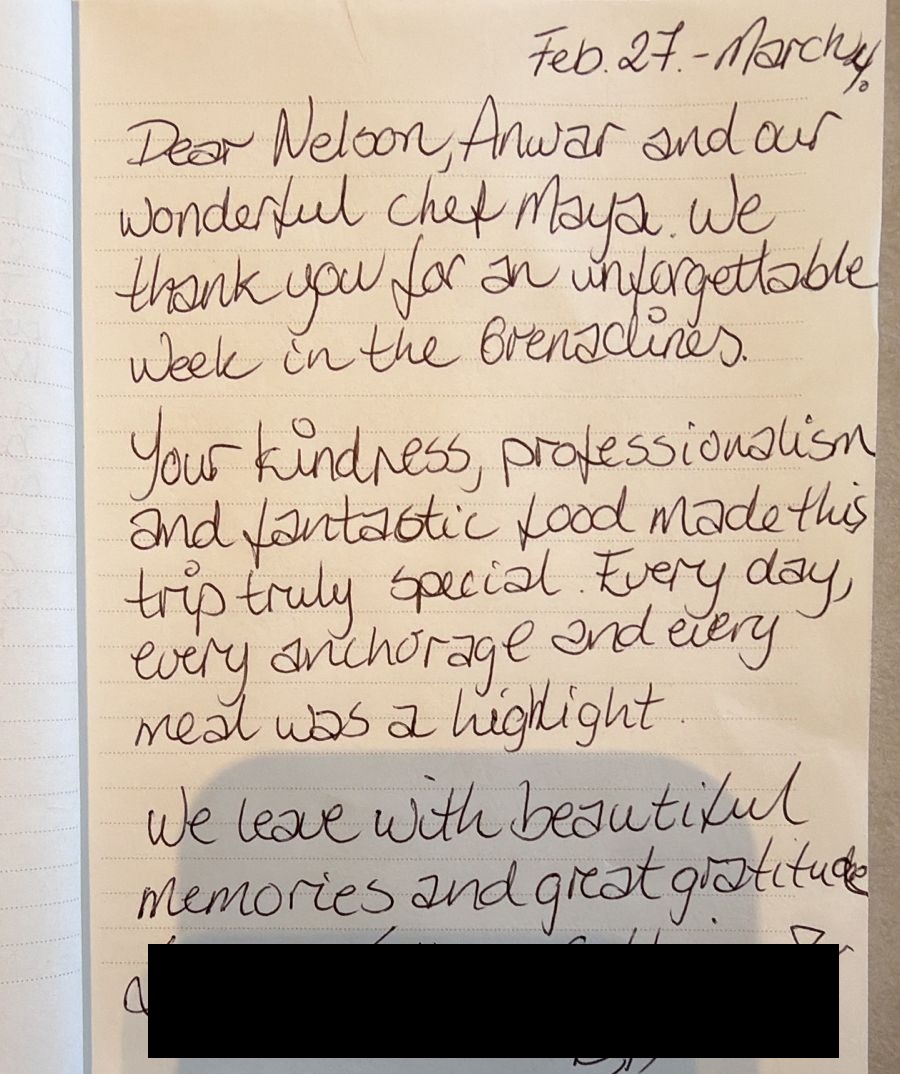 Feb. 27. - March 4.
Dear Nelson, Anwar and our
wonderful chef Maya. We
thank you for an unforgettable
week in the Grenadines.
Your kindness, professionalism
and fantastic food made this
trip truly special. Every day,
every anchorage and every
meal was a highlight.
We leave with beautiful
memories and great gratitude